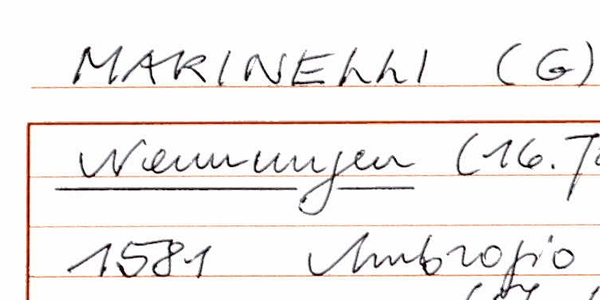 MARINELLI (G)
Nennungen (16.
1581 Ambrogio